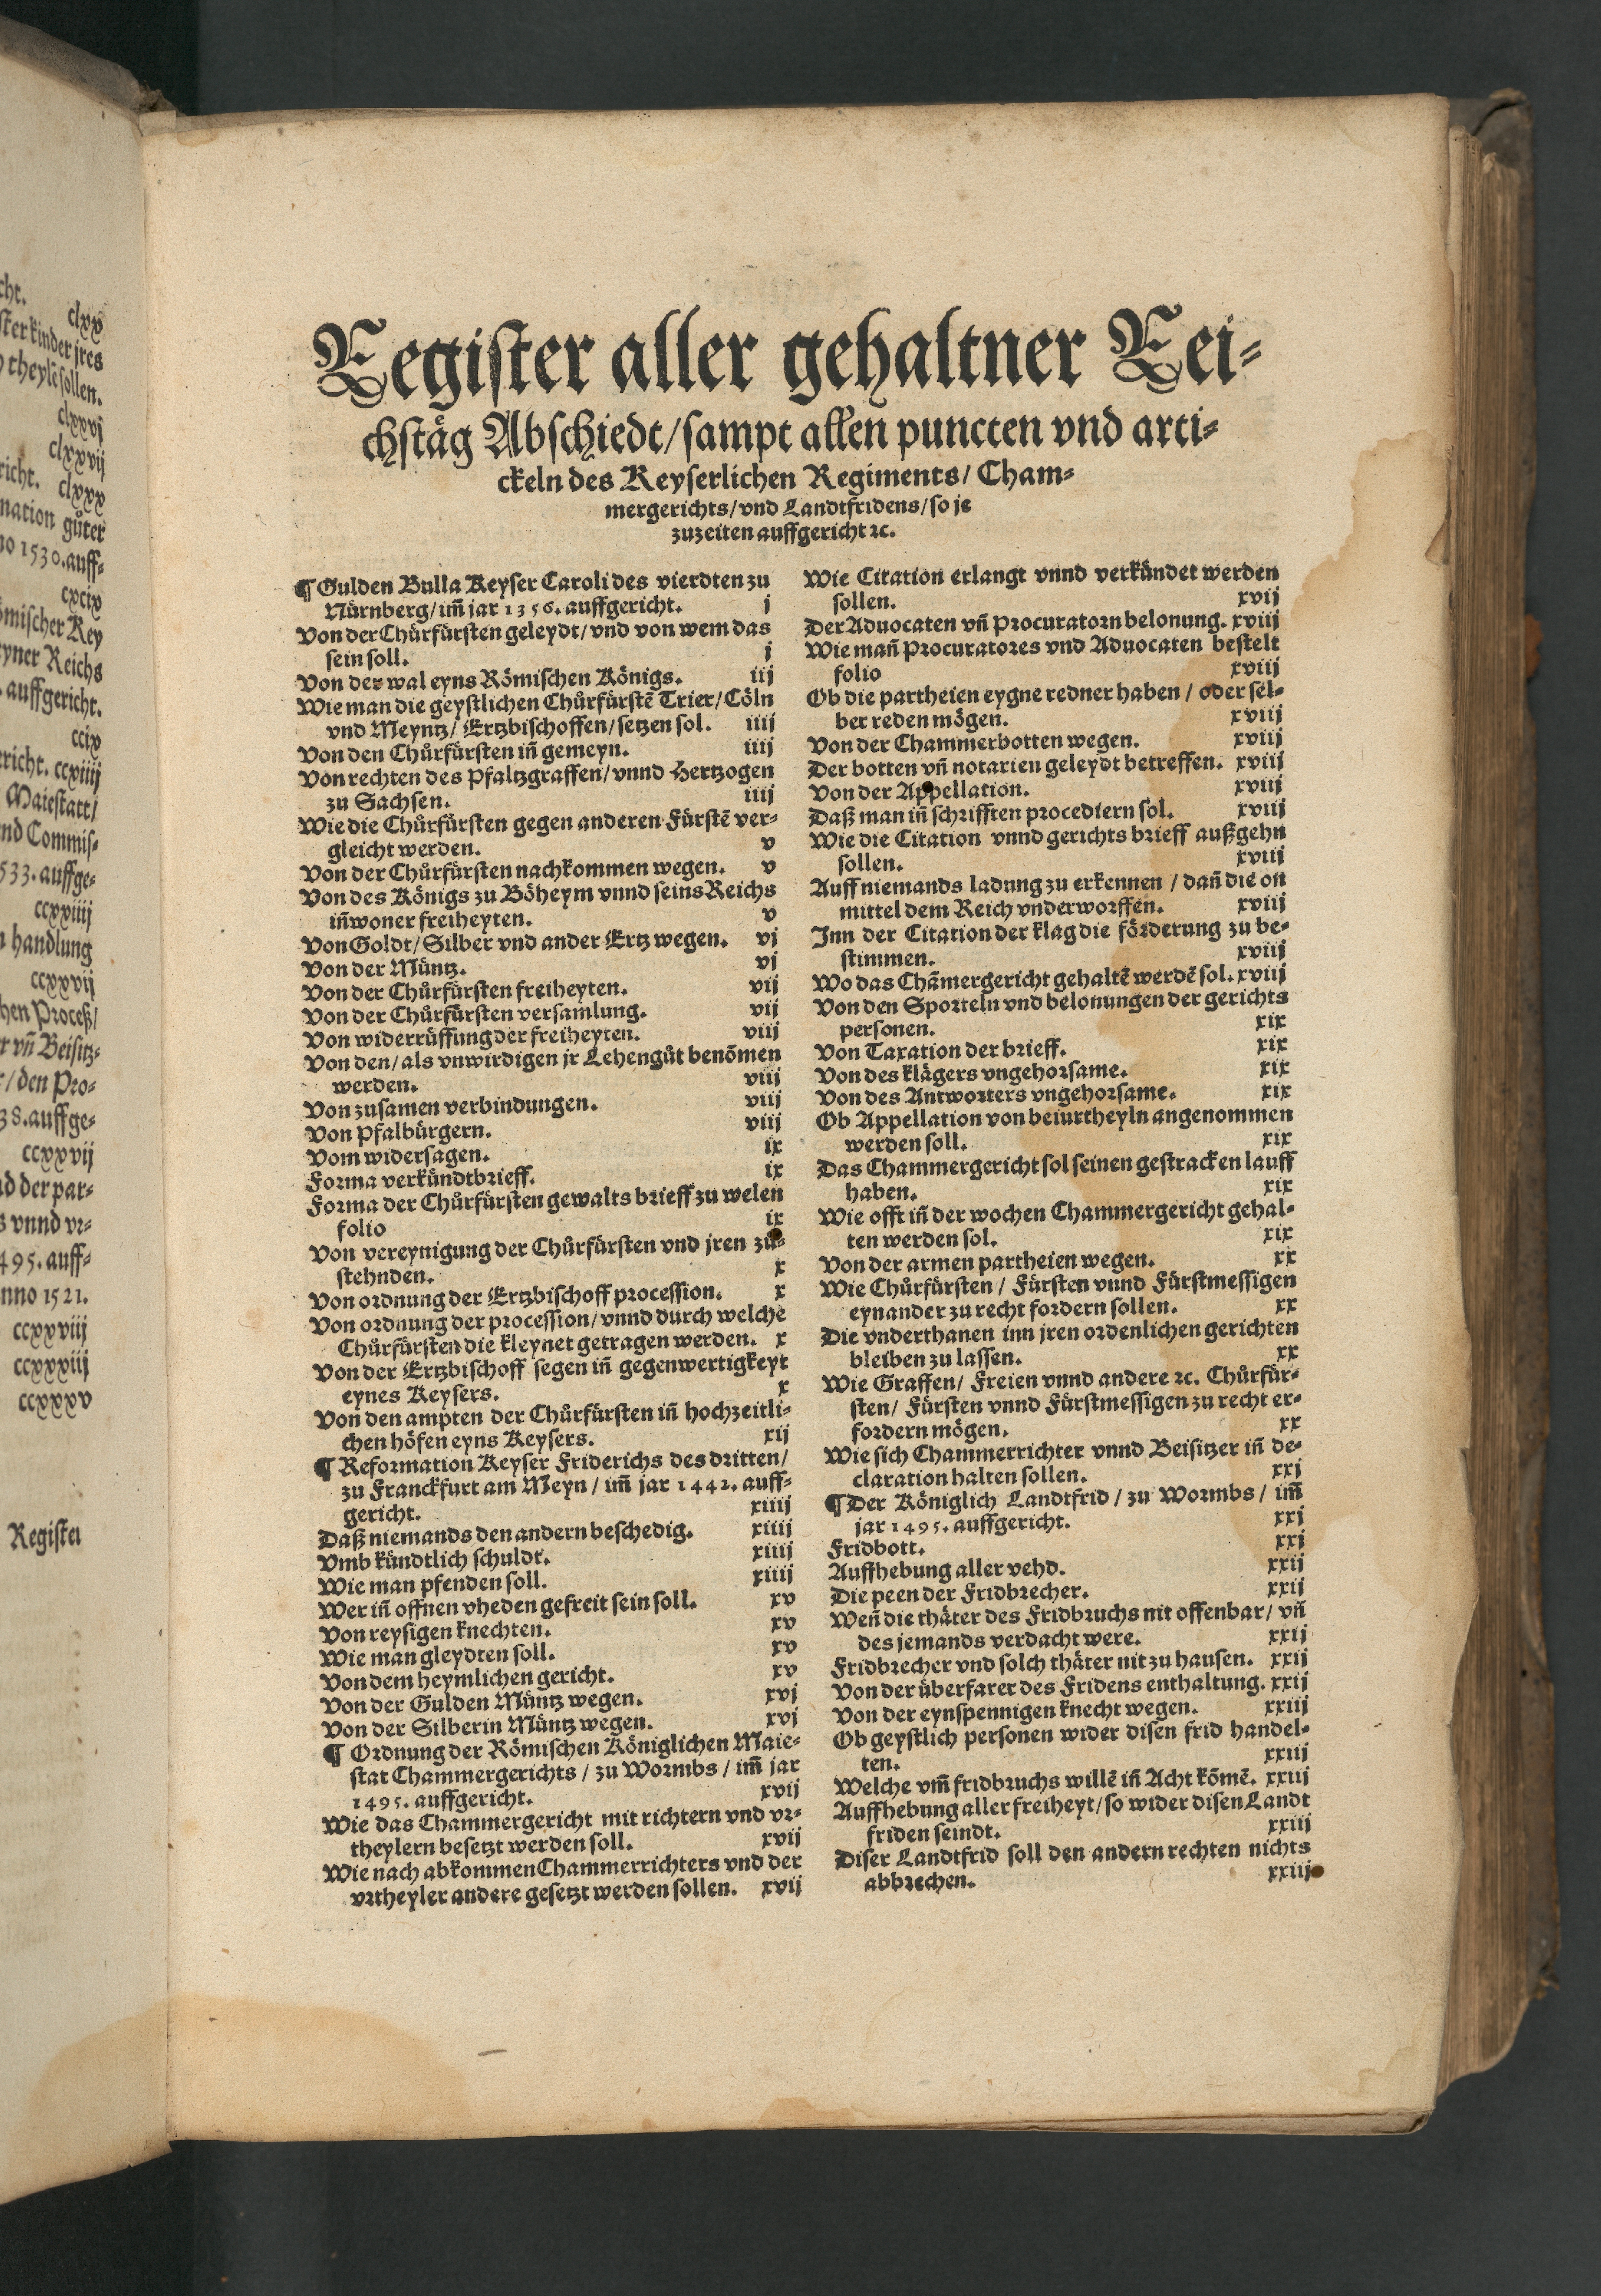 cht.
clxx
ster kinder jres
theyle sollen.
clxxvj
clxxvij
richt. clxxx
nation gůter
no 1530. auff-
cxcix
ömischer Key
yner Reichs
auffgericht.
ccix
ericht. ccxiiij
Maiestatt/
nd Commis-
533. auffge-
ccxxiiij
handlung
ccxxvij
hen Proceß/
vñ Beisitz-
/ den Pro-
38. auffge-
ccxxvij
nd der par-
vnnd vr-
495. auff-
nno 1521.
ccxxviij
ccxxxiij
ccxxxv
Register
Register aller gehaltner Rei-
chstäg Abschiedt/ sampt allen puncten vnd arti-
ckeln des Keyserlichen Regiments/ Cham-
mergerichts/ vnd Landtfridens/ so je
zuzeiten auffgericht ꝛc.
¶ Gulden Bulla Keyser Caroli des vierdten zu
Nürnberg/ im̃ jar 1356. auffgericht. j
Von der Chůrfürsten geleydt/ vnd von wem das
sein soll. j
Von der wal eyns Römischen Königs. iij
Wie man die geystlichen Chůrfürstẽ Trier/ Cöln
vnd Meyntz/ Ertzbischoffen/ setzen sol. iiij
Von den Chůrfürsten iñ gemeyn. iiij
Von rechten des Pfaltzgraffen/ vnnd Hertzogen
zu Sachsen. iiij
Wie die Chůrfürsten gegen anderen Fürstẽ ver-
gleicht werden. v
Von der Chůrfürsten nachkommen wegen. v
Von des Königs zu Böheym vnnd seins Reichs
iñwoner freiheyten. v
Von Goldt/ Silber vnd ander Ertz wegen. vj
Von der Müntz. vj
Von der Chůrfürsten freiheyten. vij
Von der Chůrfürsten versamlung. vij
Von widerrüffung der freiheyten. viij
Von den/ als vnwirdigen jr Lehengůt benõmen
werden. viij
Von zusamen verbindungen. viij
Von Pfalbürgern. viij
Vom widersagen. ix
Forma verkündtbrieff. ix
Forma der Chůrfürsten gewalts brieff zu welen
folio ix
Von vereynigung der Chůrfürsten vnd jren zů-
stehnden. x
Von ordnung der Ertzbischoff procession. x
Von ordnung der procession/ vnnd durch welche
Chůrfürsten die kleynet getragen werden. x
Von der Ertzbischoff segen iñ gegenwertigkeyt
eynes Keysers. x
Von den ampten der Chůrfürsten iñ hochzeitli-
chen höfen eyns Keysers. xij
¶ Reformation Keyser Friderichs des dritten/
zu Franckfurt am Meyn/ im̃ jar 1442. auff-
gericht. xiiij
Daß niemands den andern beschedig. xiiij
Vmb kündtlich schuldt. xiiij
Wie man pfenden soll. xiiij
Wer iñ offnen vheden gefreit sein soll. xv
Von reysigen knechten. xv
Wie man gleydten soll. xv
Von dem heymlichen gericht. xv
Von der Gulden Müntz wegen. xvj
Von der Silberin Müntz wegen. xvj
¶ Ordnung der Römischen Königlichen Maie-
stat Chammergerichts/ zu Wormbs/ im̃ jar
1495. auffgericht. xvij
Wie das Chammergericht mit richtern vnd vr-
theylern besetzt werden soll. xvij
Wie nach abkommen Chammerrichters vnd der
vrtheyler andere gesetzt werden sollen. xvij
Wie Citation erlangt vnnd verkündet werden
sollen. xvij
Der Aduocaten vñ Procuratorn belonung. xviij
Wie mañ Procuratores vnd Aduocaten bestelt
folio xviij
Ob die partheien eygne redner haben/ oder sel-
ber reden mögen. xviij
Von der Chammerbotten wegen. xviij
Der botten vñ notarien geleydt betreffen. xviij
Von der Appellation. xviij
Daß man iñ schrifften procediern sol. xviij
Wie die Citation vnnd gerichts brieff außgehn
sollen. xviij
Auff niemands ladung zu erkennen/ dañ die on
mittel dem Reich vnderworffen. xviij
Inn der Citation der klag die förderung zu be-
stimmen. xviij
Wo das Chãmergericht gehaltẽ werdẽ sol. xviij
Von den Sporteln vnd belonungen der gerichts
personen. xix
Von Taxation der brieff. xix
Von des klägers vngehorsame. xix
Von des Antworters vngehorsame. xix
Ob Appellation von beiurtheyln angenommen
werden soll. xix
Das Chammergericht sol seinen gestracken lauff
haben. xix
Wie offt iñ der wochen Chammergericht gehal-
ten werden sol. xix
Von der armen partheien wegen. xx
Wie Chůrfürsten/ Fürsten vnnd Fürstmessigen
eynander zu recht fordern sollen. xx
Die vnderthanen inn jren ordenlichen gerichten
bleiben zu lassen. xx
Wie Graffen/ Freien vnnd andere ꝛc. Chůrfür-
sten/ Fürsten vnnd Fürstmessigen zu recht er-
fordern mögen. xx
Wie sich Chammerrichter vnnd Beisitzer iñ de-
claration halten sollen. xxj
¶ Der Königlich Landtfrid/ zu Wormbs/ im̃
jar 1495. auffgericht. xxj
Fridbott. xxj
Auffhebung aller vehd. xxij
Die peen der Fridbrecher. xxij
Weñ die thäter des Fridbruchs nit offenbar/ vñ
des jemands verdacht were. xxij
Fridbrecher vnd solch thäter nit zu hausen. xxij
Von der überfarer des Fridens enthaltung. xxij
Von der eynspennigen knecht wegen. xxiij
Ob geystlich personen wider disen frid handel-
ten. xxiij
Welche vm̃ fridbruchs willẽ iñ Acht kõmẽ. xxiij
Auffhebung aller freiheyt/ so wider disen Landt
friden seindt. xxiij
Diser Landtfrid soll den andern rechten nichts
abbrechen. xxiij